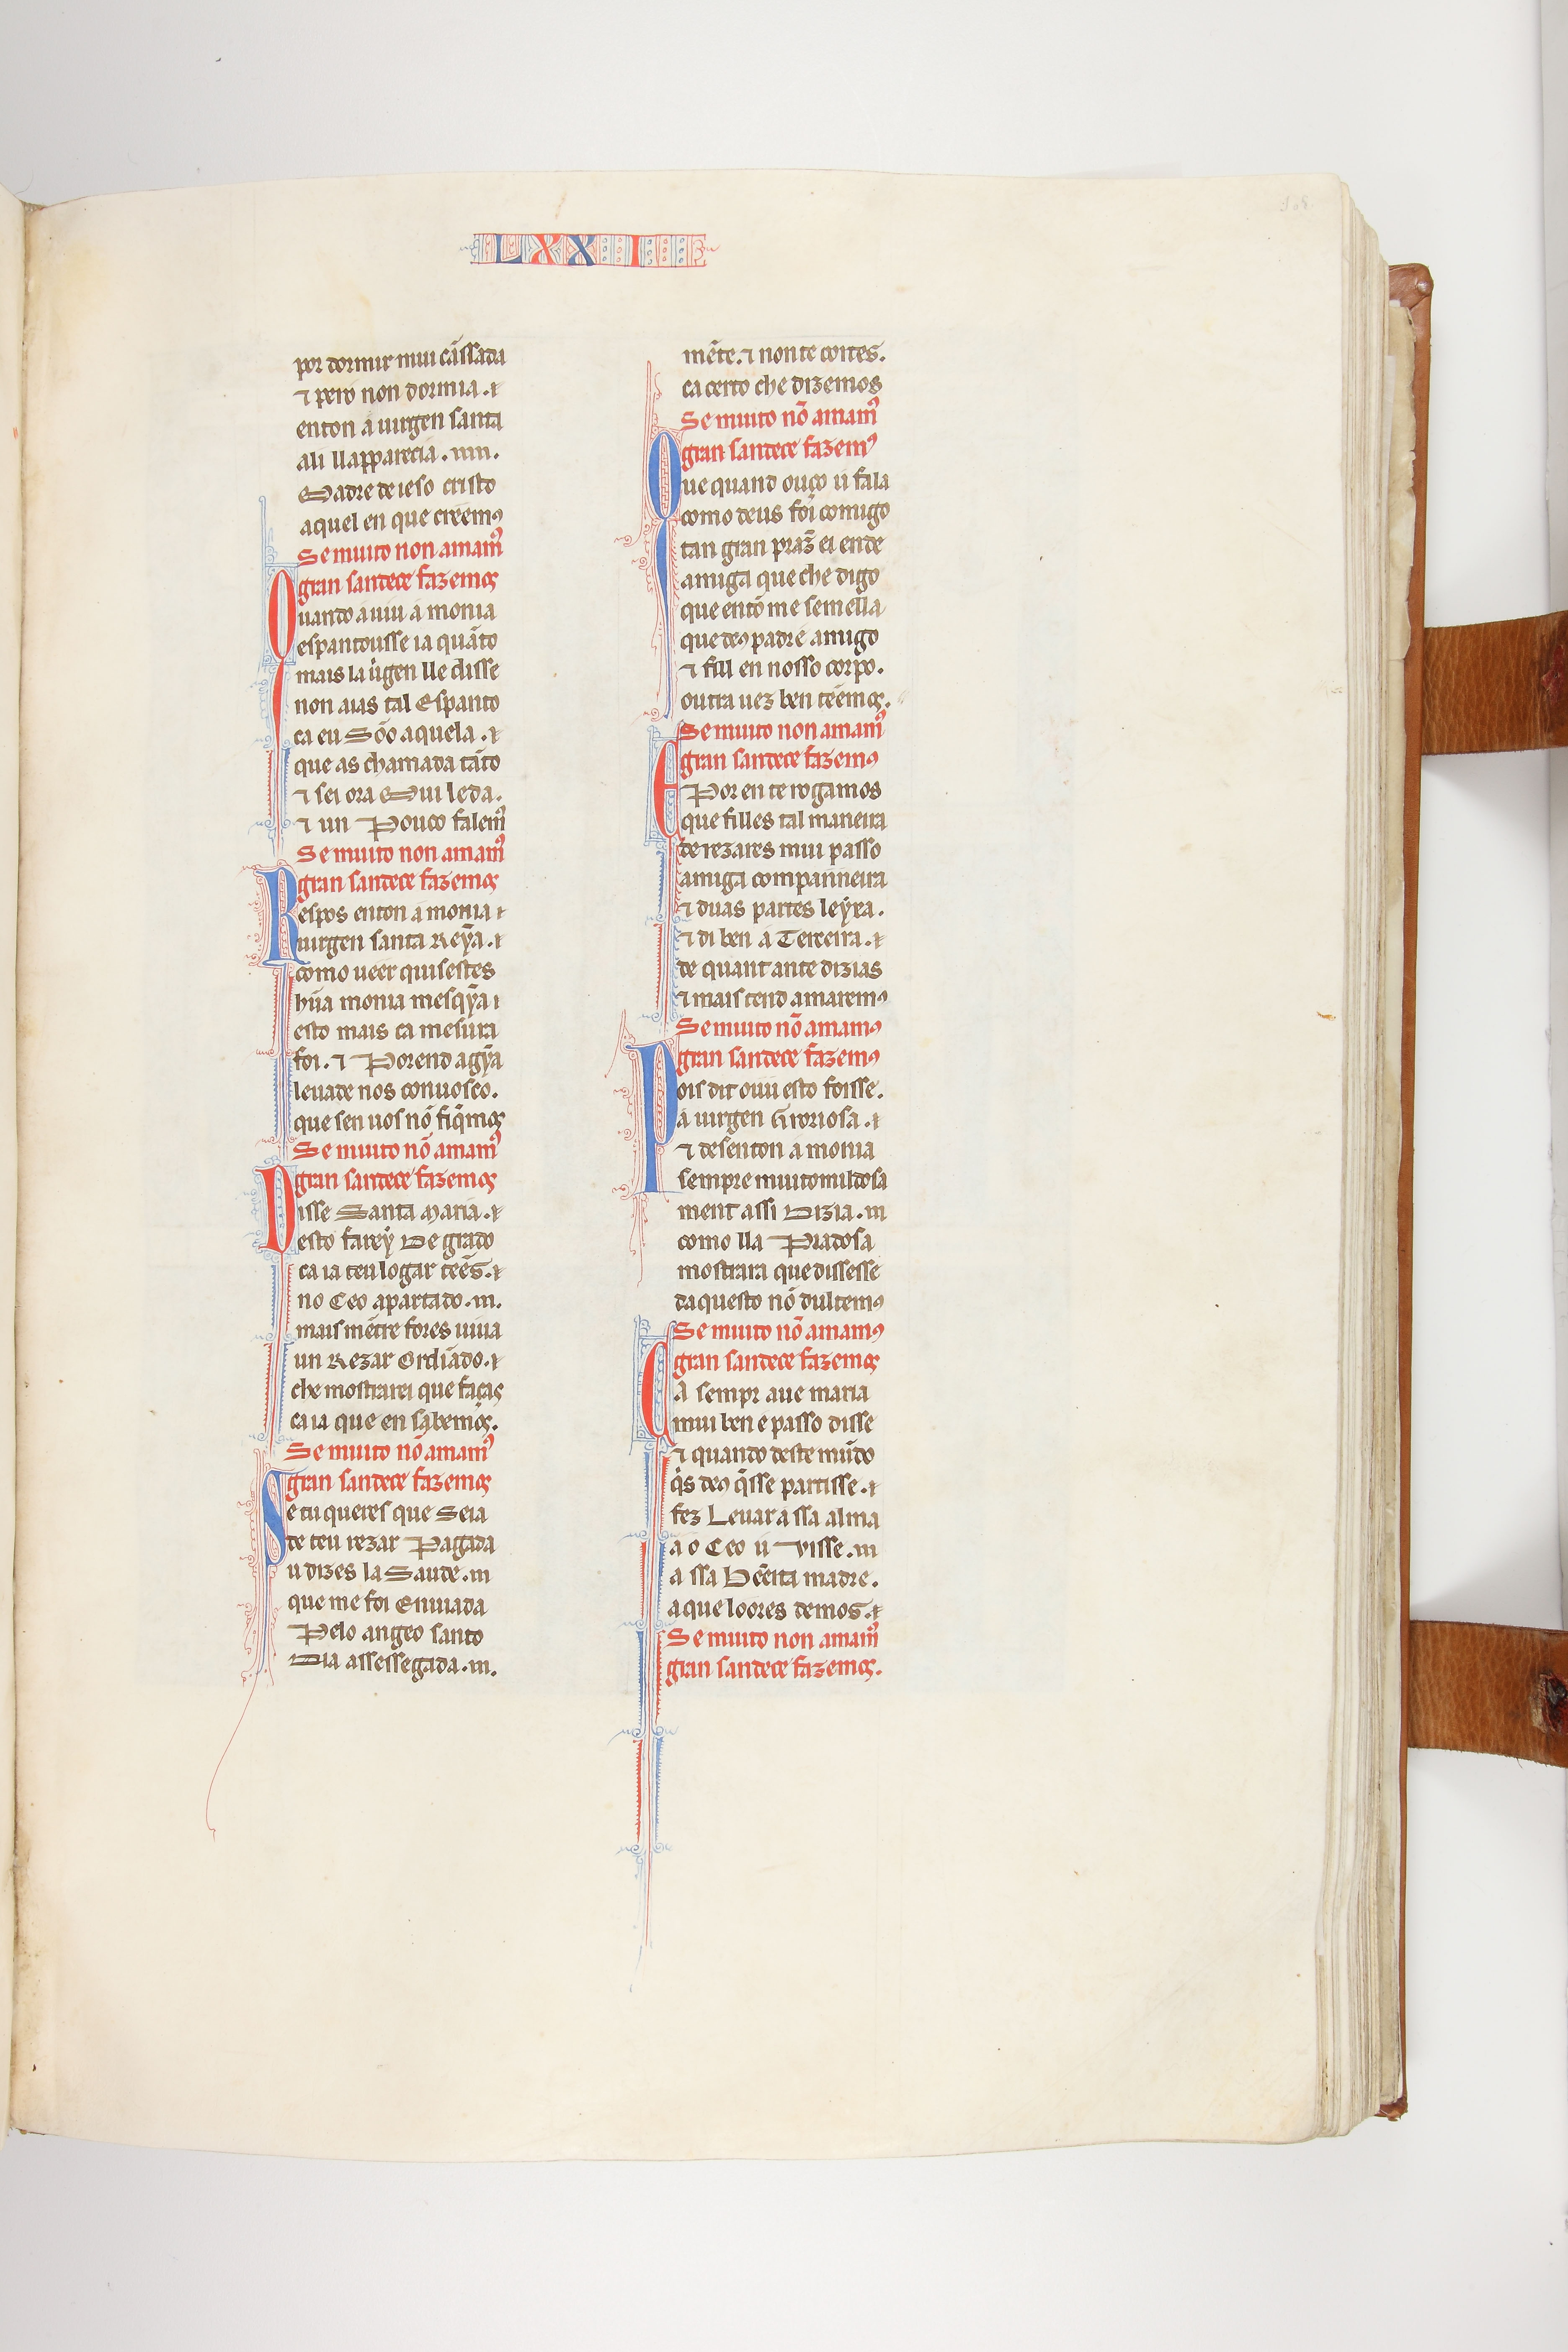 LXXI
por dormir mui cãssada
⁊ pero non dormia. ⁊
enton a uirgen santa
ali ll apparecia. ıııı.
Madre de ieso cristo
aquel en que creemꝯ
Se muito non amamꝰ
gran sandece fazemos
Quando a uiu a monia
espantousse ia quãto
mais la uirgen lle disse
non aias tal Espanto
ca eu Sõo aquela. ⁊
que as chamada tãto
⁊ sei ora Mui leda.
⁊ un Pouco falemꝰ
Se muito non amamꝰ
gran sandece fazemos
Respos enton a monia ⁊
uirgen santa Reỹa. ⁊
como ueer quisestes
hũa monia mesqỹa ı
esto mais ca mesura
foi. ⁊ Porend agỹa
leuade nos conuosco.
que sen uos nõ fiq̃mos
Se muito nõ amamꝰ
gran sandece fazemos
Disse Santa Maria. ⁊
esto farey De grado
ca ia teu logar tẽes. ⁊
no Ceo apartado. ııı.
mais mẽtre fores uiua
un Rezar Ordĩado. ⁊
che mostrarei que faças
ca ia que en sabemos.
Se muito nõ amamꝰ
gran sandece fazemos
Se tu queres que Seia
de teu rezar Pagada
u dizes la Saude. ııı
que me foi Enuiada
Pelo angeo santo
Dia assessegada. ııı.
mẽte. ⁊ non te coites.
ca certo che dizemos
Se muito nõ amamꝰ
gran sandece fazemꝰ
Que quand ouço u fala
como deus foi comigo
tan gran praz̃ ei ende
amiga que che digo
que entõ me semella
que deꝯ padre amigo
⁊ fill en nosso corpo.
outra uez ben tẽemos.
Se muito non amamꝰ
gran sandece fazemꝯ
E Por en te rogamos
que filles tal maneira
de rezares mui passo
amiga companneira
⁊ duas partes leyxa.
⁊ di ben a Terceira. ⁊
de quant ante dizias
⁊ mais tend amaremꝯ
Se muito nõ amamꝯ
gran sandece fazemꝯ
Pois dit ouu esto foisse.
a uirgen Groriosa. ⁊
⁊ desenton a monia
sempre muit omildosa
ment assi Dizia. ııı
como lla Piadosa
mostrara que dissesse
daquesto nõ dultemꝯ
Se muito nõ amamꝯ
gran sandece fazemos
Ca sempr aue maria
mui ben e passo disse
⁊ quando deste mũdo
q̇s deꝯ q̇sse partisse. ⁊
fez Leuar a ssa alma
a o Ceo u Visse. ııı
a ssa Bẽeita madre.
a que loores demos. ⁊
Se muito non amamꝰ
gran sandece fazemos.